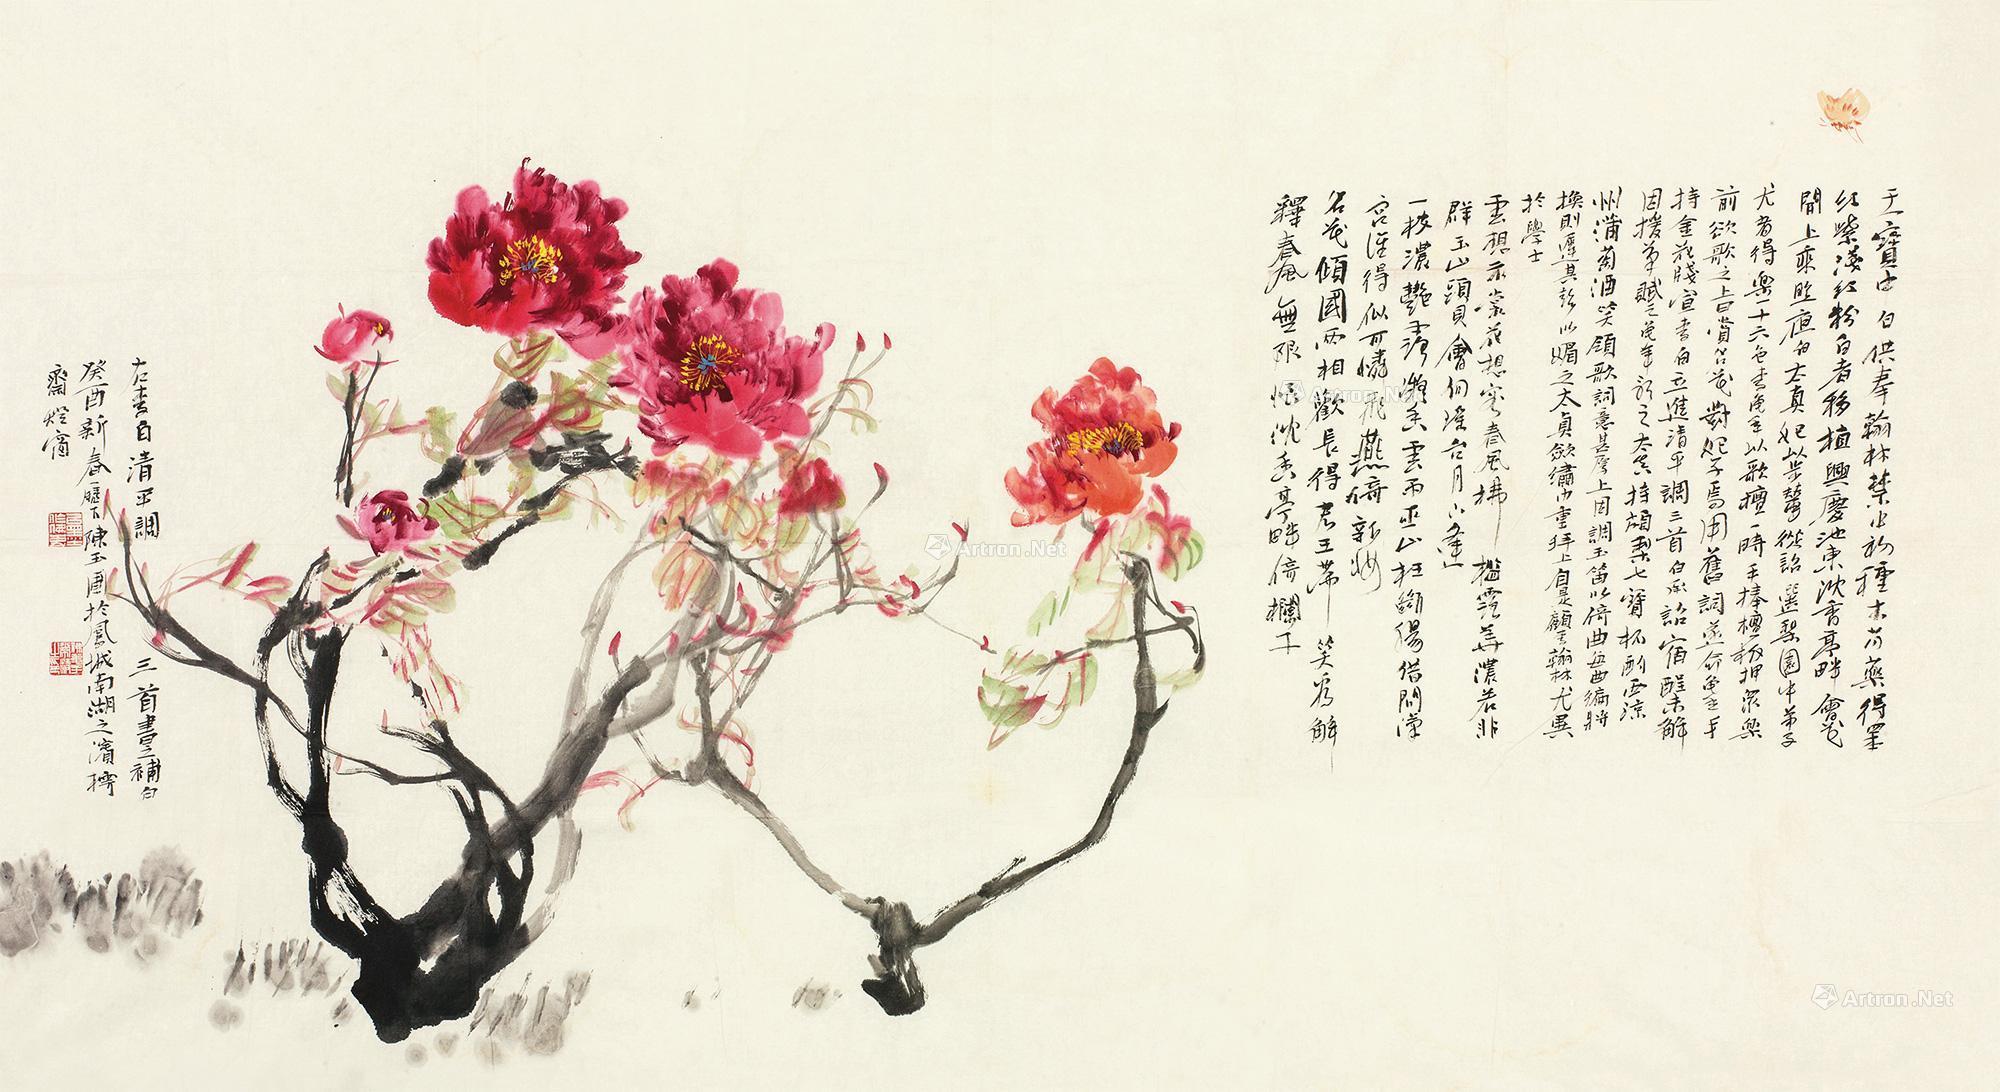 天寶中白供奉翰林禁中初種木芍藥得
紅紫淺紅粉白者移植興慶池東沈香亭畔會花
開上乘照夜白太真妃以步輦從詔選梨園中弟子
尤者得樂十六色李龜年以歌擅一時手捧檀板押衆樂
前欲歌之上曰賞名花對妃子焉用舊詞為命龜年手
持金花牋宣李白立進清平調三首白承詔宿酲未解
因援筆賦之龜年歌之太真持頗梨七寶杯酌西涼
州蒲萄酒笑領歌詞意甚厚上因調玉笛以倚曲每曲徧將
換則遲其聲以媚之太真斂繡巾重拜上自是顧李翰林尤異
於學士
雲想衣裳花想容春風拂檻露華濃若非
群玉山頭見會向瑤台月下逢
一枝濃艷露凝香雲雨巫山枉斷腸借問漢
宮誰得似可憐飛燕倚新妝
名花傾國兩相歡長得君王帶笑看解
釋春風無限恨沈香亭畔倚欄干
右李白清平調三首畫補白
癸酉新春歷下陳玉圃於鳳城南湖之濱
齋燈窗
Artron.Net
Artron.Net
Artron.Net
Artron.Net